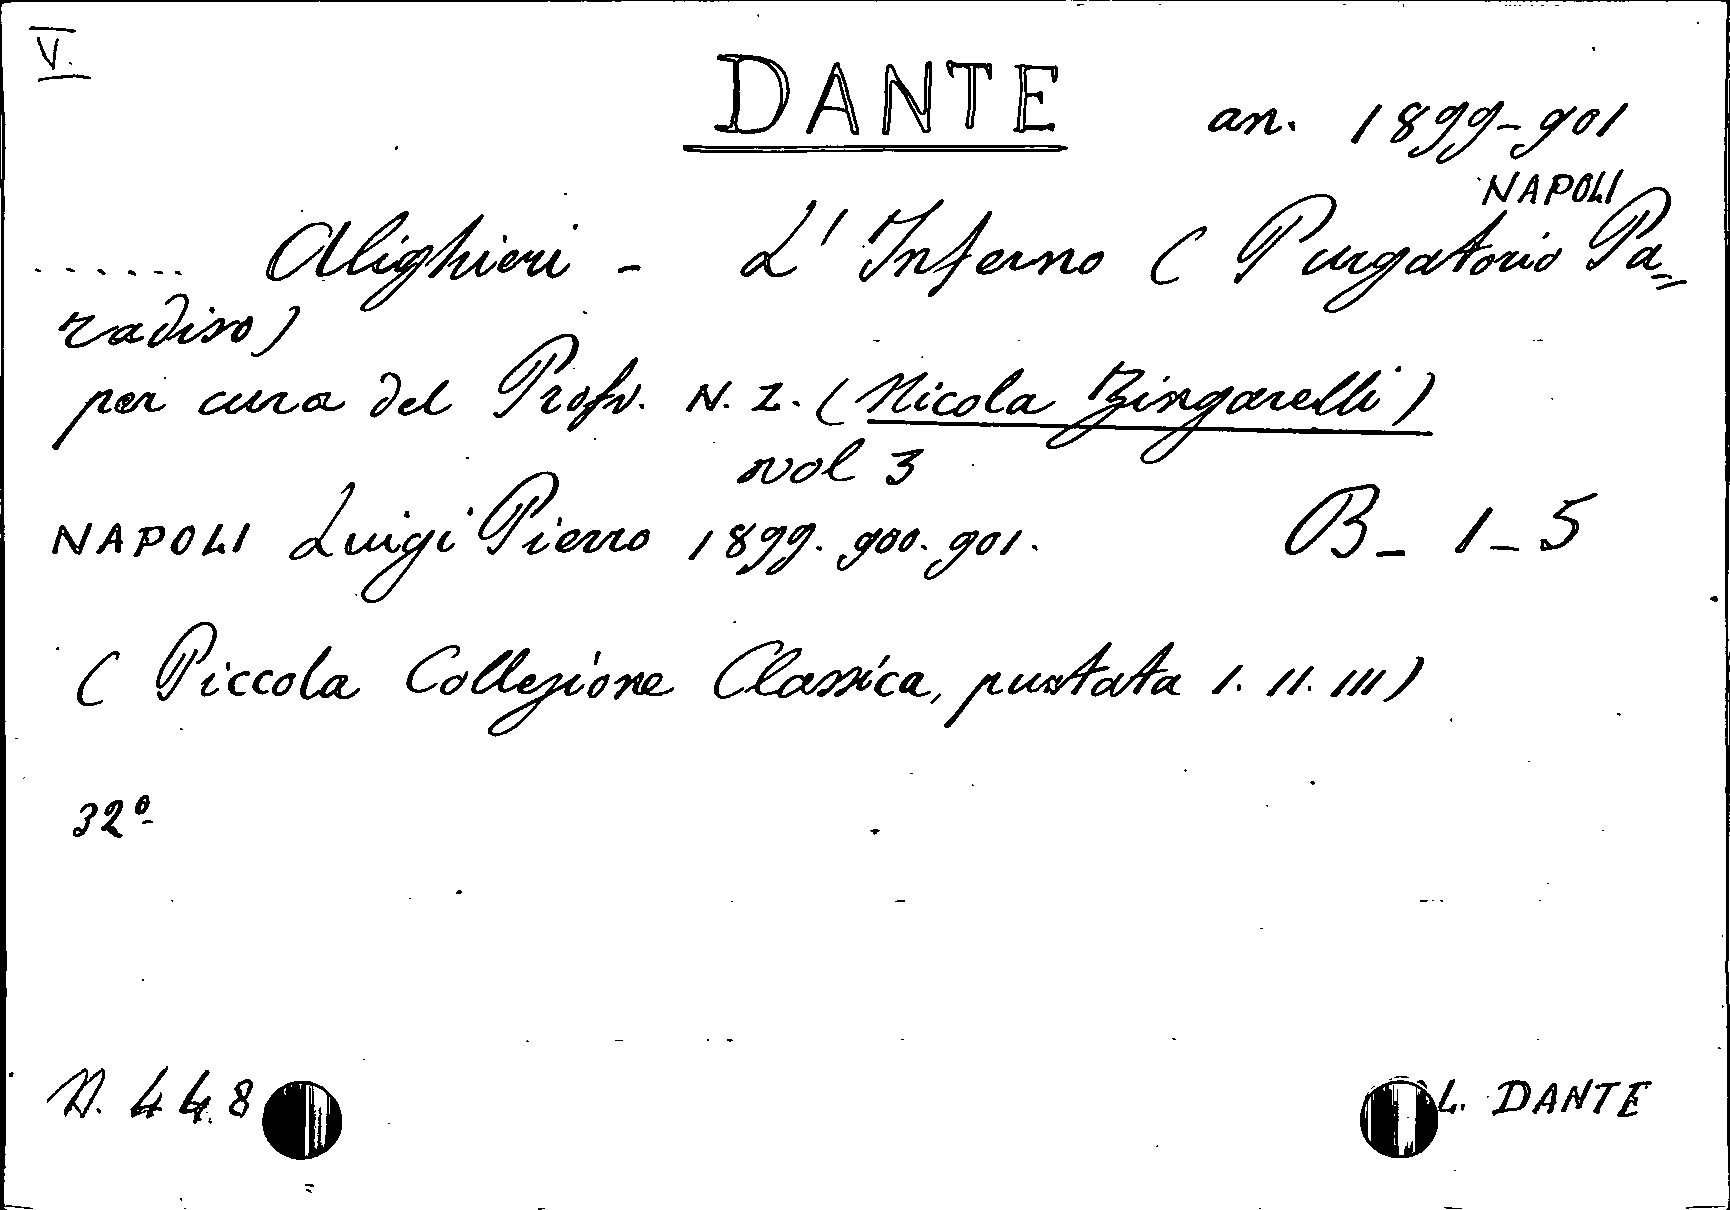 V.
DANTE
an. 1899-901
NAPOLI
...... Alighieri - L'Inferno ( Purgatorio Pa=
radiso)
per cura del Profr. N. Z. (Nicola Zingarelli)
vol 3
NAPOLI Luigi Pierro 1899. 900. 901.
B - 1 - 5
( Piccola Collezione Classica, puntata I. II. III)
32º
N. 448
L. DANTE